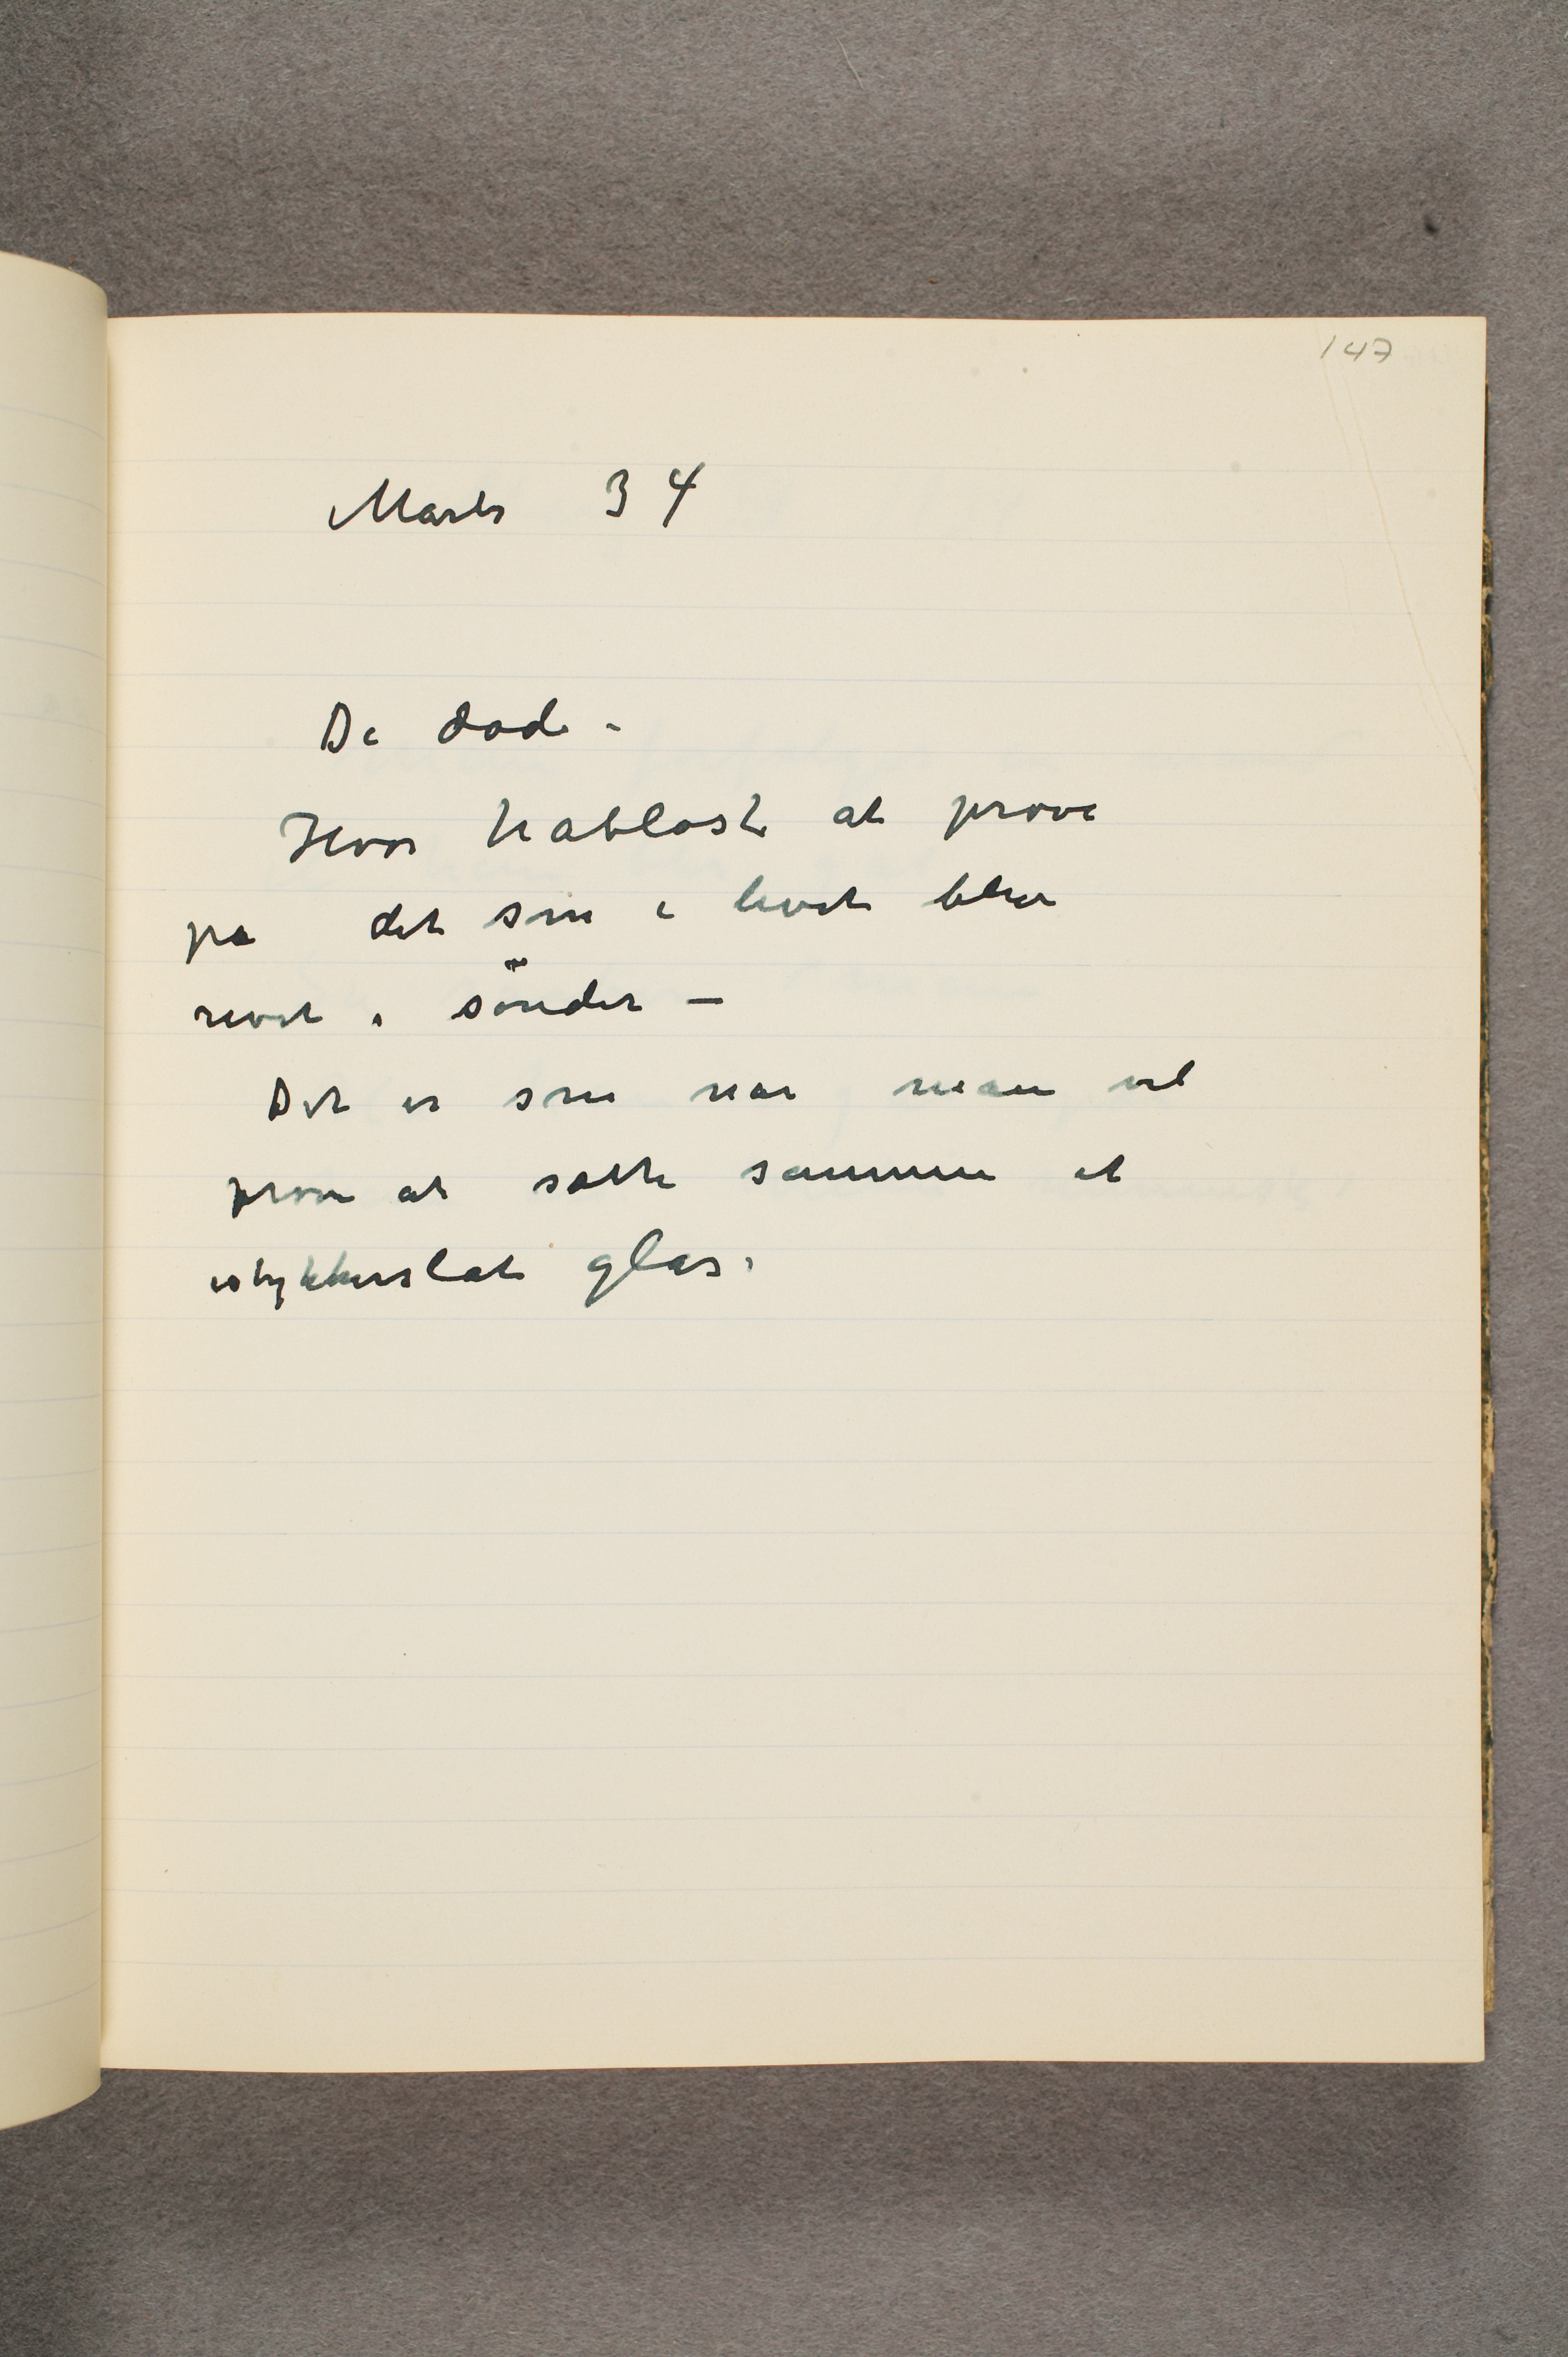 147
Marts 34
De døde -
Hvor håbløst at prøve
på det som i livet blev
revet i sönder —
Det er som når man vil
prøve at sætte sammen et
istykkerslåt glas.